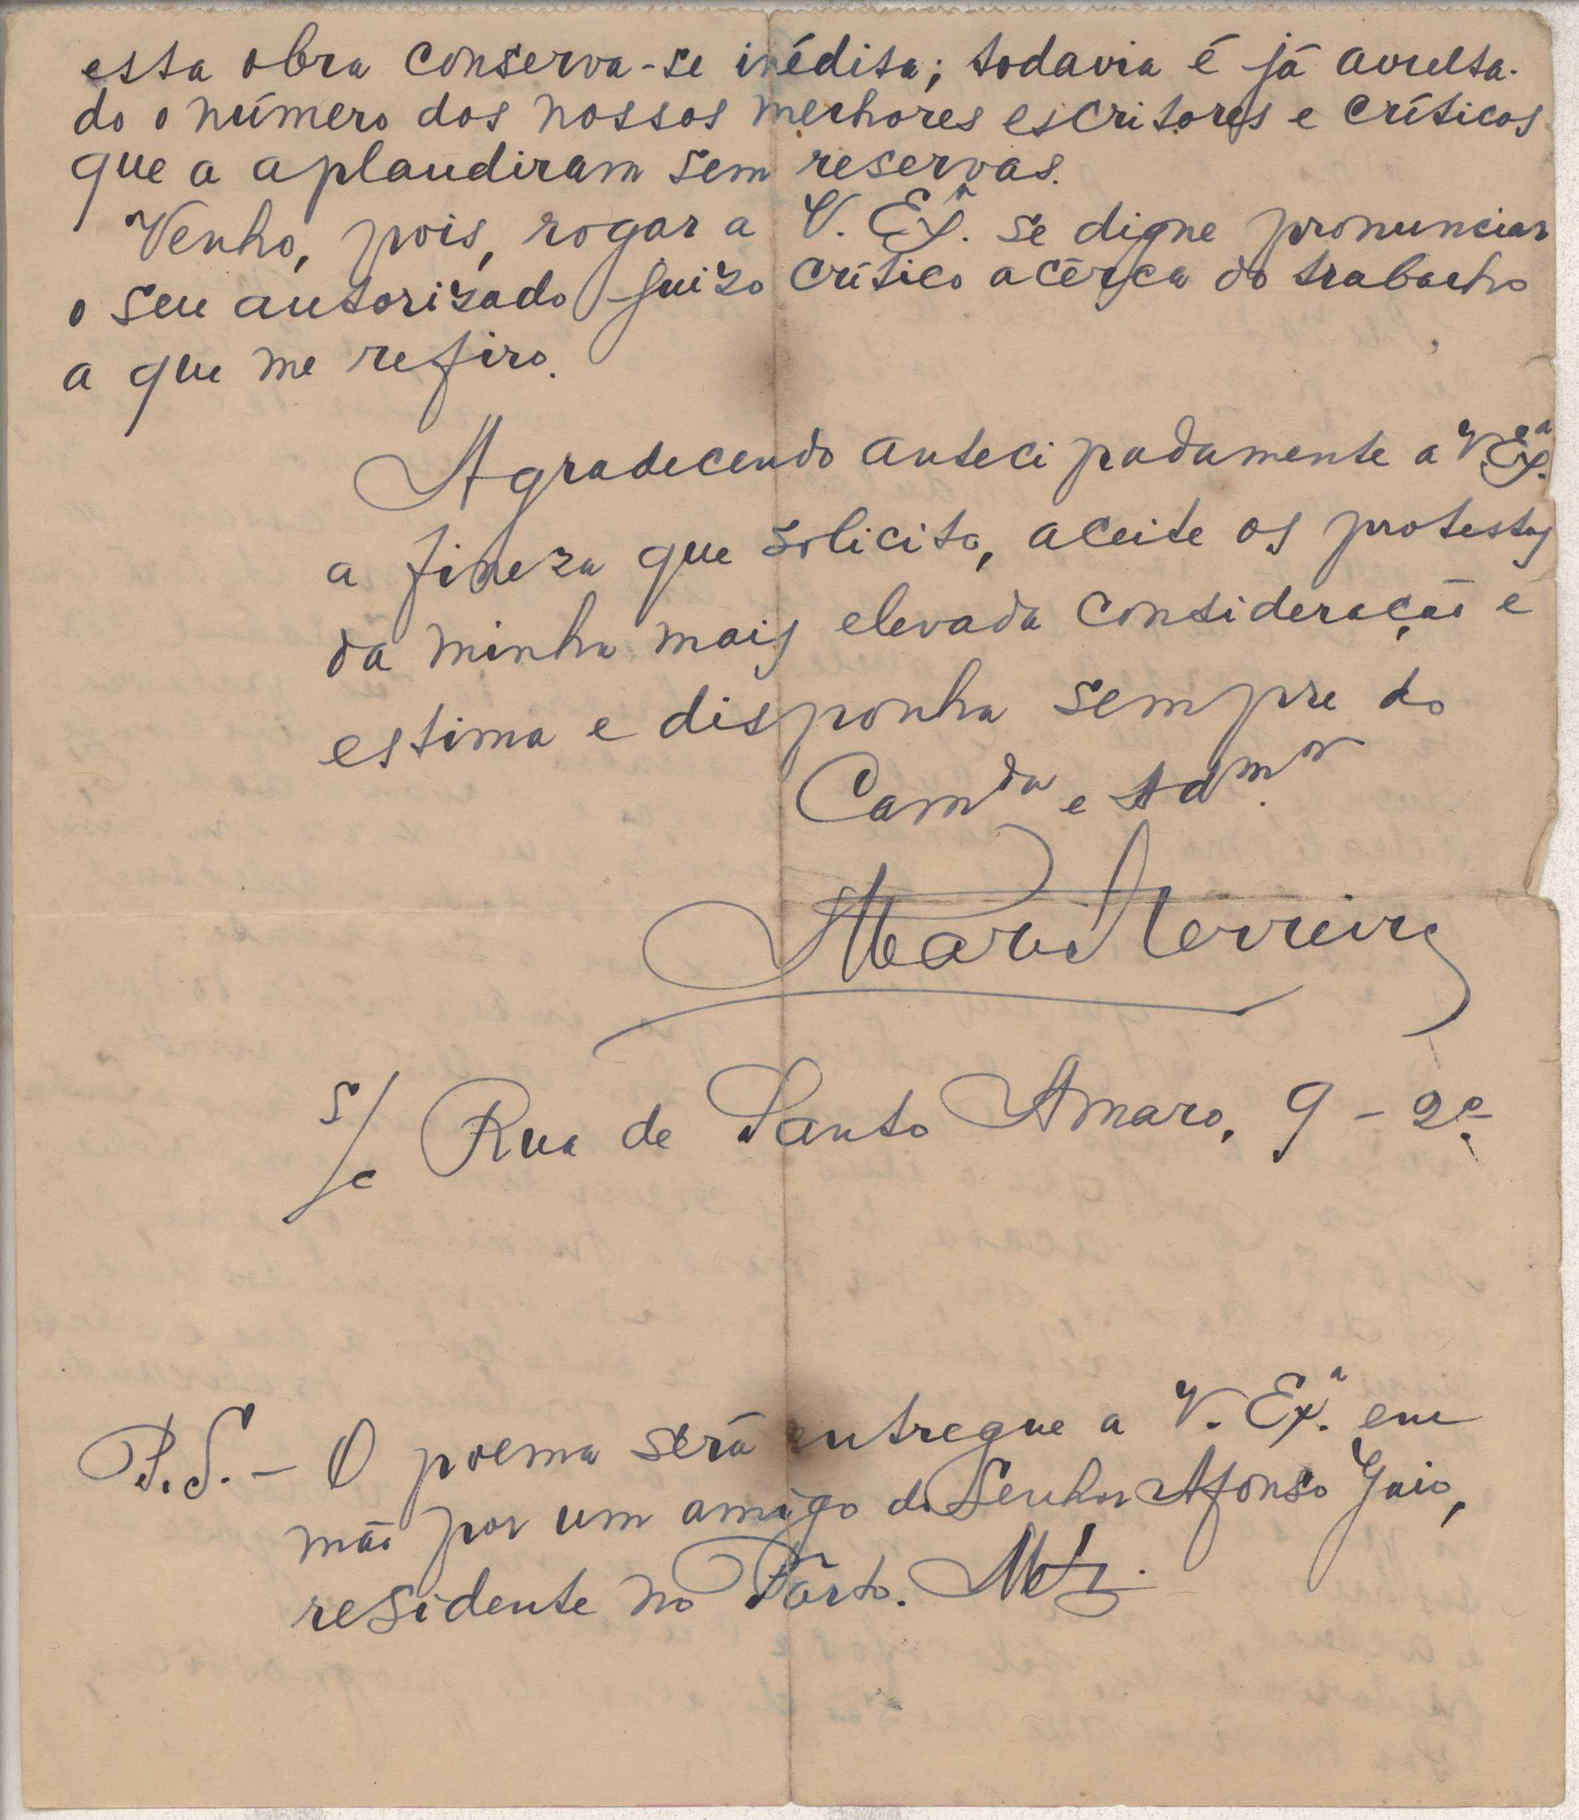 esta obra conserva-se inédita; todavia é já avulta-
do o número dos nossos melhores escritores e críticos
que a aplaudiram sem reservas.
Venho, pois, rogar a V. Exª. se digne pronunciar
o seu autorizado juizo crítico acêrca do trabalho
a que me refiro.
Agradecendo antecipadamente a V. Exª.
a fineza que solicito, aceite os protestos
da minha mais elevada consideração e
estima e disponha sempre do
Camda e Admor
Mario Ferreira
s/c Rua de Santo Amaro, 9 - 2º.
P.S. - O poema será entregue a V. Exª. em
mão por um amigo do Senhor Afonso Gaio,
residente no Pôrto.